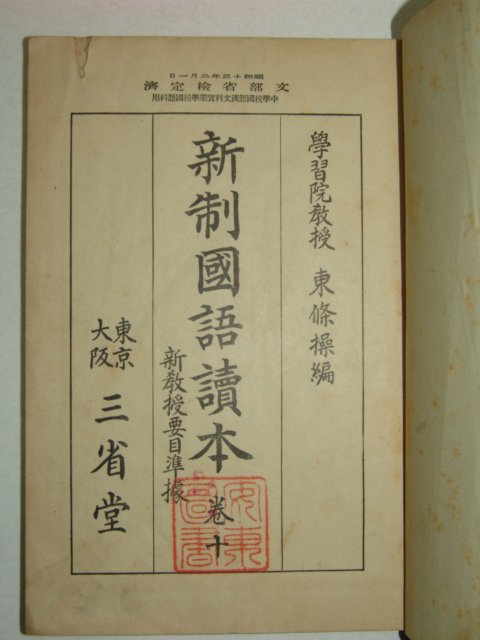 昭和十三年二月一日
文部省檢定濟
中學校國語漢文科實業學校國語科用
學習院教授 東條操編
新制國語讀本
卷十
新教授要目準據
東京
大阪
三省堂